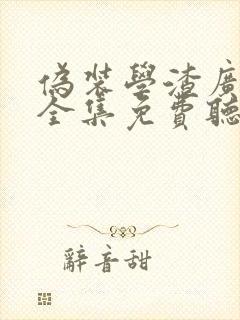 偽裝學渣廣
全集免費聽
辭音甜